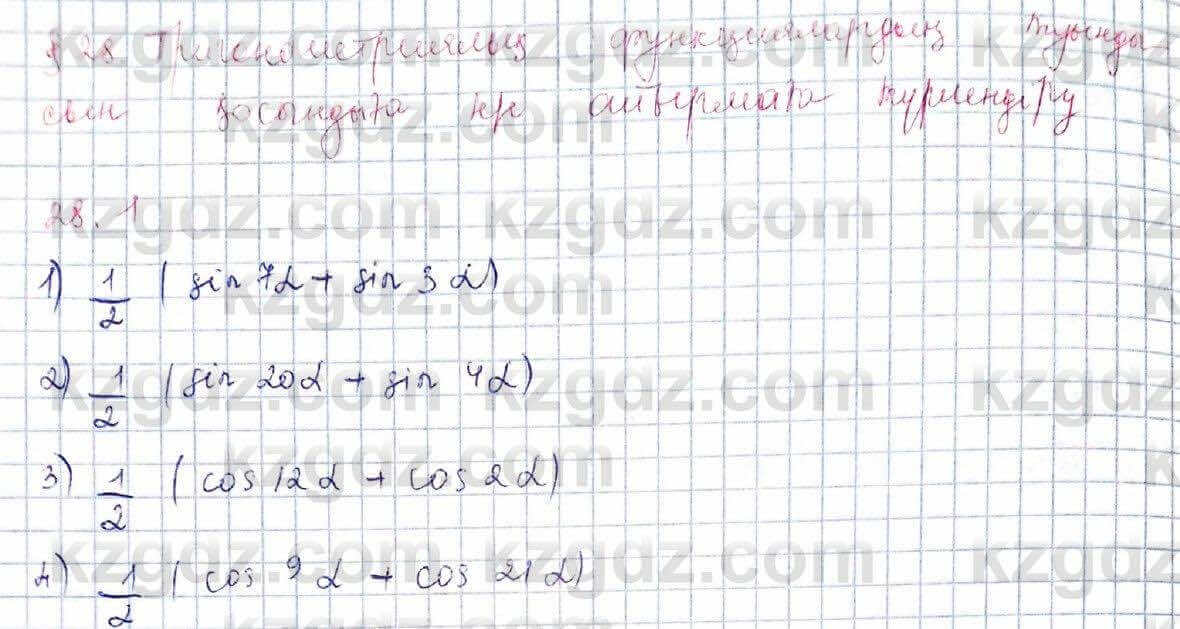 § 28 Тригонометриялық функциялардың туынды
сын қосындыға не айырмаға түрлендіру
28.1
1) 1/2 (sin 7α + sin 3α)
2) 1/2 (sin 20α + sin 4α)
3) 1/2 (cos 12α + cos 2α)
4) 1/2 (cos 9α + cos 21α)
kzgdz.com